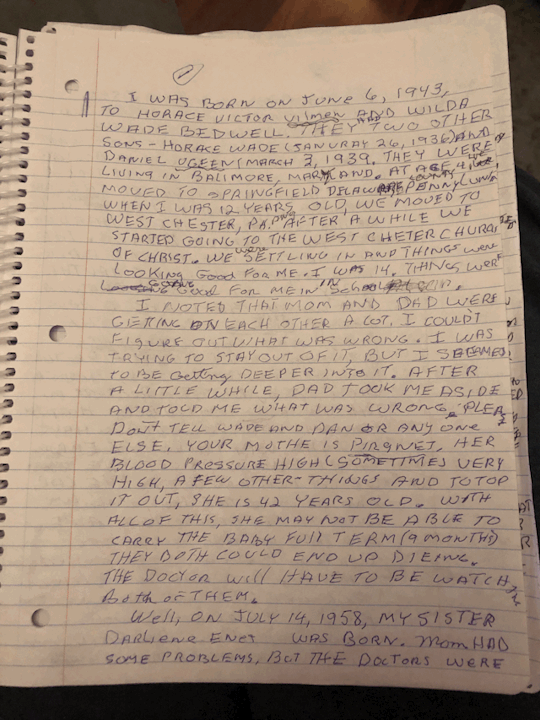 I WAS BORN ON JUNE 6, 1943,
TO HORACE VICTOR AND WILDA
WADE BEDWELL. THEY HAD TWO OTHER
SONS - HORACE WADE (JANURAY 26, 1936) AND
DANIEL UGEEN (MARCH 3, 1939. THEY WERE
LIVING IN BALIMORE, MARYLAND. AT AGE 4
MOVED TO SPRINGFIELD DELAWARE COUNTY,
WHEN I WAS 12 YEARS OLD, WE MOVED TO
WEST CHESTER, PA. AFTER A WHILE WE
STARTED GOING TO THE WEST CHETER CHURCH
OF CHRIST. WE WERE SETTLING IN AND THINGS WERE
LOOKING Good FOR ME. I WAS 14. THINGS WERE
GOING Good FOR ME IN SCHOOL
I NOTED THAT MOM AND DAD WERE
GETTING ON EACH OTHER A LOT. I COULDT
FIGURE OUT WHAT WAS WRONG. I WAS
TRYING TO STAY OUT OF IT, BUT I SEEMED
TO BE Getting DEEPER INTO IT. AFTER
A LITTLE WHILE, DAD TOOK ME ASIDE
AND TOLD ME WHAT WAS WRONG. PLEASE
DON'T TELL WADE AND DAN OR ANY ONE
ELSE. YOUR MOTHE IS PIRGNET. HER
BLOOD PRESSURE HIGH (SOMETIMES VERY
HIGH, A FEW OTHER THINGS AND TO TOP
IT OUT, SHE IS 42 YEARS OLD. WITH
ALL OF THIS, SHE MAY NOT BE ABLE TO
CARRY THE BABY FULL TERM (9 MONTHS)
THEY BOTH COULD END UP DIEING.
THE DOCTOR will HAVE TO BE WATCHING
Both OF THEM.
Well, ON JULY 14, 1958, MY SISTER
DARLIENE ENET WAS BORN. Mom HAD
SOME PROBLEMS, BUT THE DOCTORS WERE